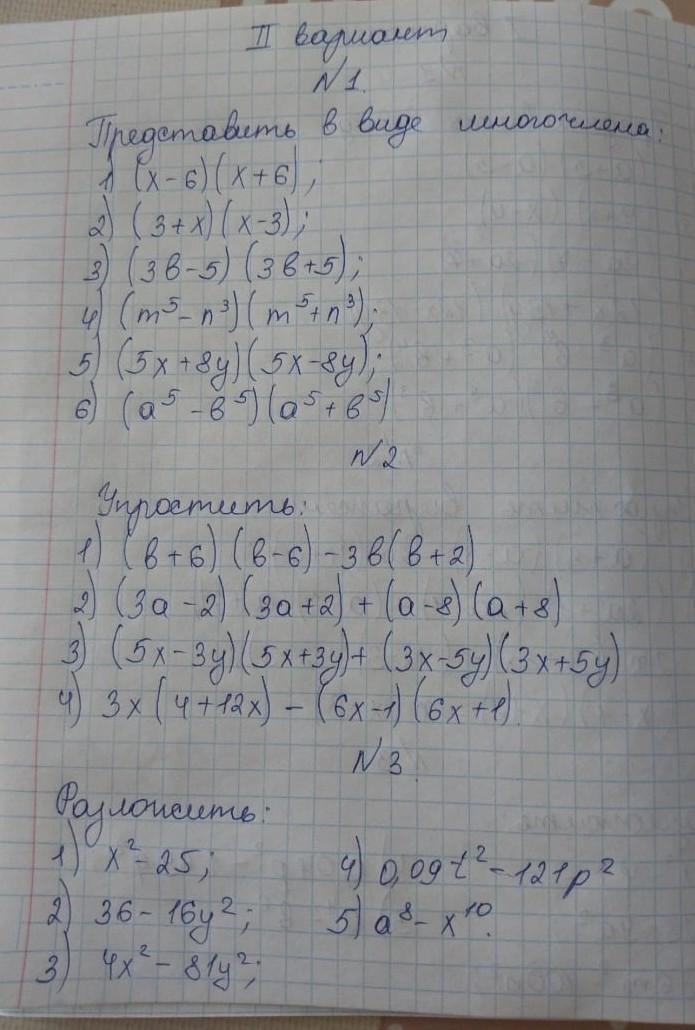 II вариант
N1.
Представить в виде многочлена:
1) (x-6)(x+6);
2) (3+x)(x-3);
3) (3в-5)(3в+5);
4) (m⁵-n³)(m⁵+n³);
5) (5x+8y)(5x-8y);
6) (a⁵-в⁵)(a⁵+в⁵)
N2
Упростить:
1) (в+6)(в-6)-3в(в+2)
2) (3a-2)(3a+2)+(a-8)(a+8)
3) (5x-3y)(5x+3y)+(3x-5y)(3x+5y)
4) 3x(4+12x)-(6x-1)(6x+1).
N3
Разложить:
1) x²-25;
2) 36-16y²;
3) 4x²-81y²;
4) 0,09t²-121p²
5) a⁸-x¹⁰.